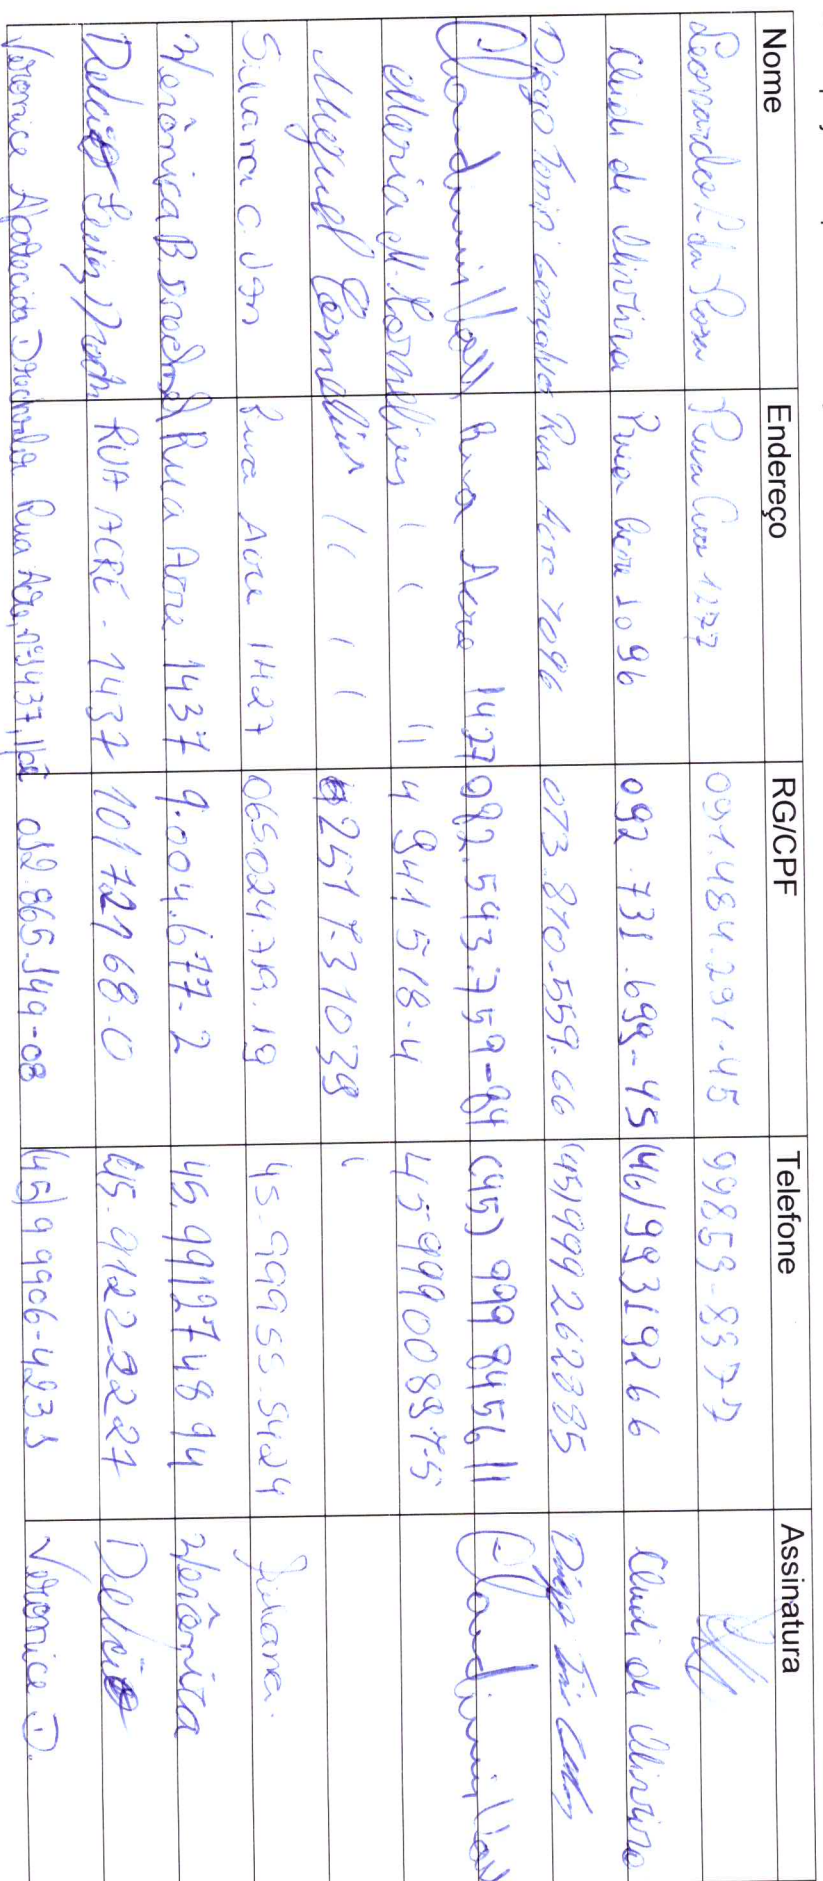 Nome Endereço RG/CPF Telefone Assinatura
Leonardo da Rosa Rua Acre 1277 091.484.291-45 99859-8377
Cleidi de Oliveira Rua Acre 1096 092.731.699-45 (46)99319266 Cleidi de Oliveira
Diogo Gonçalves Rua Acre 1096 073.870.559.66 (45)999262885 Diogo
Claudemir Rua Acre 1427 982.543.759-84 (45) 999845611 Claudemir
Maria M. Cornelius 11 11 4941518-4 45999008975
Miguel Cornelius 11 11 6251731039
Silvana C. Rua Acre 1427 065024.719.19 45.99955.5424 Silvana.
Verônica B. Rua Acre 1437 9.004.677-2 45.991274894 Verônica
RUA ACRE - 1437 10172168-0 45.91222227
Veronice Aparecida Rua Acre, nº1437, 052865.149-08 (45)99906-4233 Veronice D.